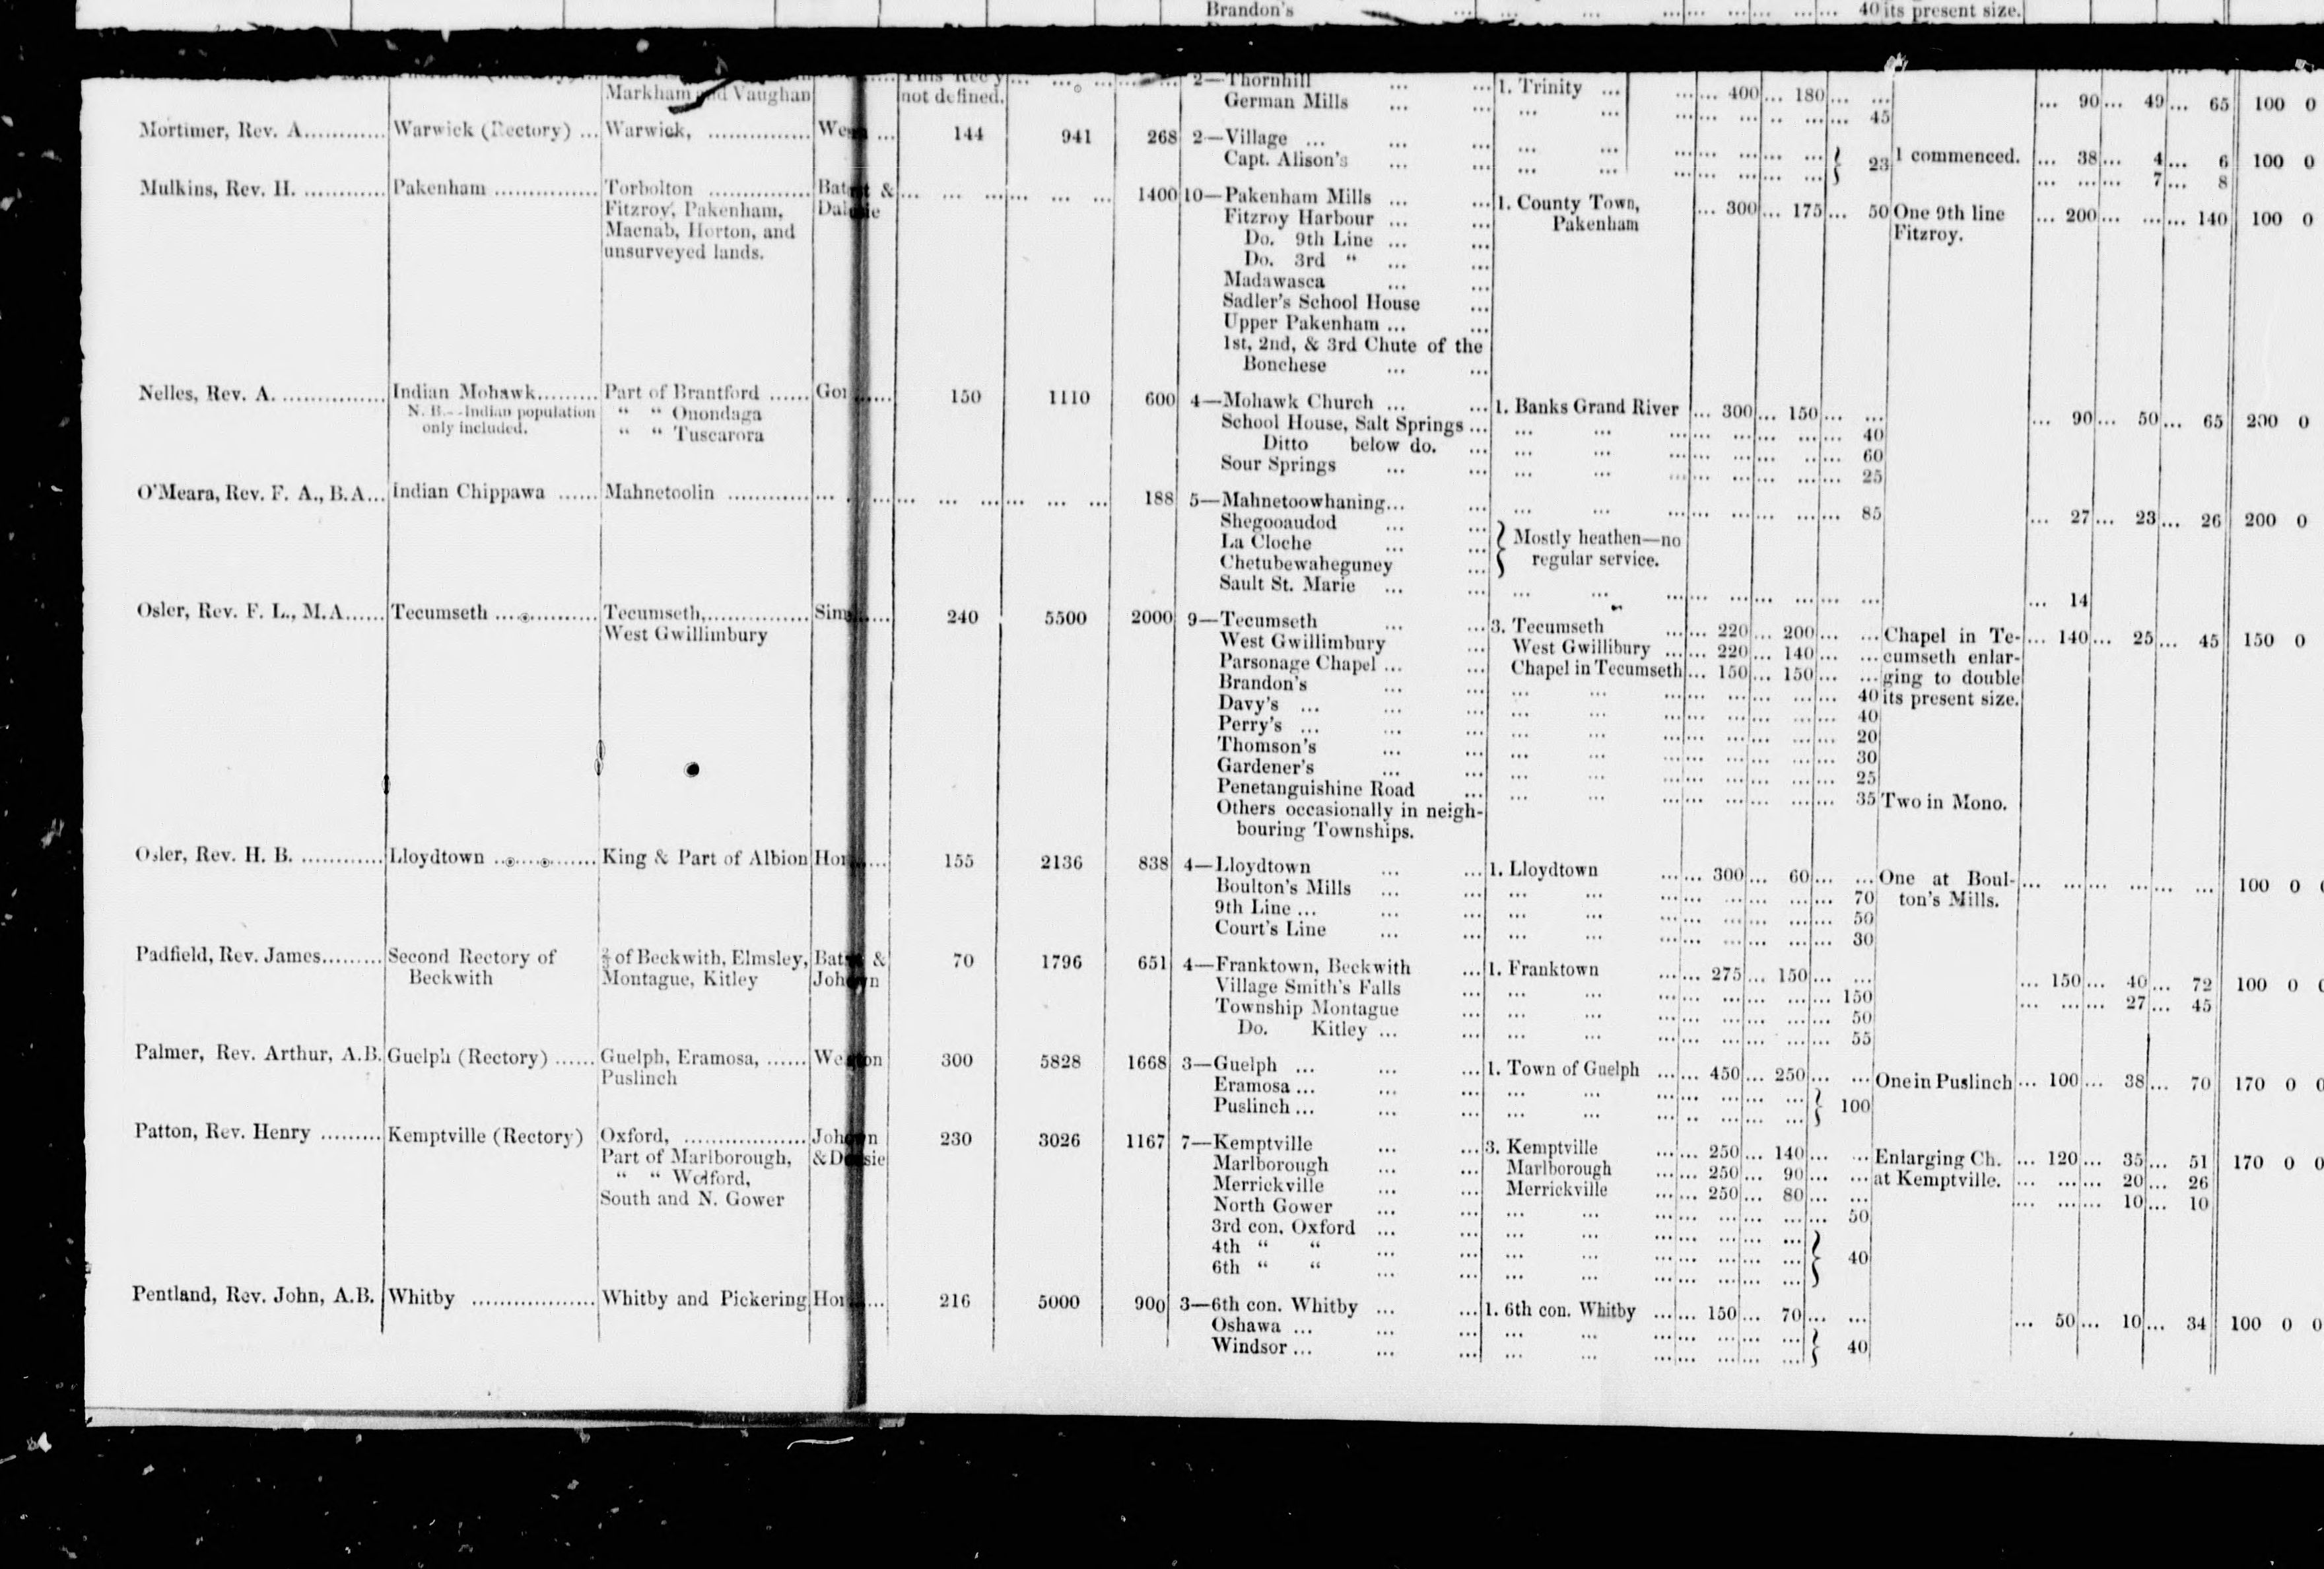 Brandon's ... ... ... ... ... ... ... ... ... 40 its present size.
Markham and Vaughan not defined. 2—Thornhill ... ... 1. Trinity ... ... ... 400 ... 180 ... ... ... 90 ... 49 ... 65 100 0
German Mills ... ... ... ... ... ... ... ... ... 45
Mortimer, Rev. A............ Warwick (Rectory) ... Warwick, ............... ... 144 941 268 2—Village ... ... ... ... ... 23 1 commenced. ... 38 ... 4 ... 6 100 0
Capt. Alison's ... ... ... ... ... ... ... ... 7 ... 8
Mulkins, Rev. H. ............ Pakenham ............... Torbolton ............... & ... ... ... ... ... ... 1400 10—Pakenham Mills ... ... 1. County Town, ... 300 ... 175 ... 50 One 9th line ... 200 ... ... ... 140 100 0
Fitzroy, Pakenham, Fitzroy Harbour ... ... Pakenham Fitzroy.
Macnab, Horton, and Do. 9th Line ... ...
unsurveyed lands. Do. 3rd “ ... ...
Madawasca ... ...
Sadler's School House ...
Upper Pakenham ... ...
1st, 2nd, & 3rd Chute of the
Bonchese ... ...
Nelles, Rev. A. ............... Indian Mohawk......... Part of Brantford ...... 150 1110 600 4—Mohawk Church ... ... 1. Banks Grand River ... 300 ... 150 ... ... ... 90 ... 50 ... 65 200 0
N. B.--Indian population “ “ Onondaga School House, Salt Springs ... ... ... ... ... ... ... ... 40
only included. “ “ Tuscarora Ditto below do. ... ... ... ... ... ... ... 60
Sour Springs ... ... ... ... ... ... ... ... 25
O'Meara, Rev. F. A., B.A... Indian Chippawa ...... Mahnetoolin ............ ... ... ... ... ... ... ... 188 5—Mahnetoowhaning... ... ... ... ... ... ... ... 85 ... 27 ... 23 ... 26 200 0
Shegooaudod ... ...
La Cloche ... ... } Mostly heathen—no
Chetubewaheguney ... regular service.
Sault St. Marie ... ... ... ... ... ... ... ... ... 14
Osler, Rev. F. L., M.A...... Tecumseth ............... Tecumseth,............... 240 5500 2000 9—Tecumseth ... ... 3. Tecumseth ... ... 220 ... 200 ... ... Chapel in Te- ... 140 ... 25 ... 45 150 0
West Gwillimbury West Gwillimbury ... West Gwillibury ... ... 220 ... 140 ... ... cumseth enlar-
Parsonage Chapel ... ... Chapel in Tecumseth ... 150 ... 150 ... ... ging to double
Brandon's ... ... ... ... ... ... ... ... ... 40 its present size.
Davy's ... ... ... ... ... ... ... ... ... 40
Perry's ... ... ... ... ... ... ... ... ... 20
Thomson's ... ... ... ... ... ... ... ... ... 30
Gardener's ... ... ... ... ... ... ... ... ... 25
Penetanguishine Road ... ... ... ... ... ... ... ... 35 Two in Mono.
Others occasionally in neigh-
bouring Townships.
Osler, Rev. H. B. ............ Lloydtown ............... King & Part of Albion 155 2136 838 4—Lloydtown ... ... 1. Lloydtown ... ... 300 ... 60 ... ... One at Boul- ... ... ... ... ... ... 100 0
Boulton's Mills ... ... ... ... ... ... ... ... ... 70 ton's Mills.
9th Line ... ... ... ... ... ... ... ... ... 50
Court's Line ... ... ... ... ... ... ... ... ... 30
Padfield, Rev. James......... Second Rectory of ⅔ of Beckwith, Elmsley, & 70 1796 651 4—Franktown, Beckwith ... 1. Franktown ... ... 275 ... 150 ... ... ... 150 ... 40 ... 72 100 0
Beckwith Montague, Kitley Village Smith's Falls ... ... ... ... ... ... ... ... 150 ... ... ... 27 ... 45
Township Montague ... ... ... ... ... ... ... ... 50
Do. Kitley ... ... ... ... ... ... ... ... ... 55
Palmer, Rev. Arthur, A.B. Guelph (Rectory) ...... Guelph, Eramosa, ...... 300 5828 1668 3—Guelph ... ... ... 1. Town of Guelph ... ... 450 ... 250 ... ... One in Puslinch ... 100 ... 38 ... 70 170 0 0
Puslinch Eramosa ... ... ... ... ... ... ... ... ...
Puslinch ... ... ... ... ... ... ... ... ... } 100
Patton, Rev. Henry ......... Kemptville (Rectory) Oxford, .................. 230 3026 1167 7—Kemptville ... ... 3. Kemptville ... ... 250 ... 140 ... ... Enlarging Ch. ... 120 ... 35 ... 51 170 0 0
Part of Marlborough, Marlborough ... ... Marlborough ... ... 250 ... 90 ... ... at Kemptville. ... ... ... 20 ... 26
“ “ Wolford, Merrickville ... ... Merrickville ... ... 250 ... 80 ... ... ... ... ... 10 ... 10
South and N. Gower North Gower ... ... ... ... ... ... ... ... ... 50
3rd con. Oxford ... ... ... ... ... ... ... ...
4th “ “ ... ... ... ... ... ... ... ... } 40
6th “ “ ... ... ... ... ... ... ... ...
Pentland, Rev. John, A.B. Whitby .................. Whitby and Pickering 216 5000 900 3—6th con. Whitby ... ... 1. 6th con. Whitby ... ... 150 ... 70 ... ... ... 50 ... 10 ... 34 100 0 0
Oshawa ... ... ... ... ... ... ... ... ...
Windsor ... ... ... ... ... ... ... ... ... } 40